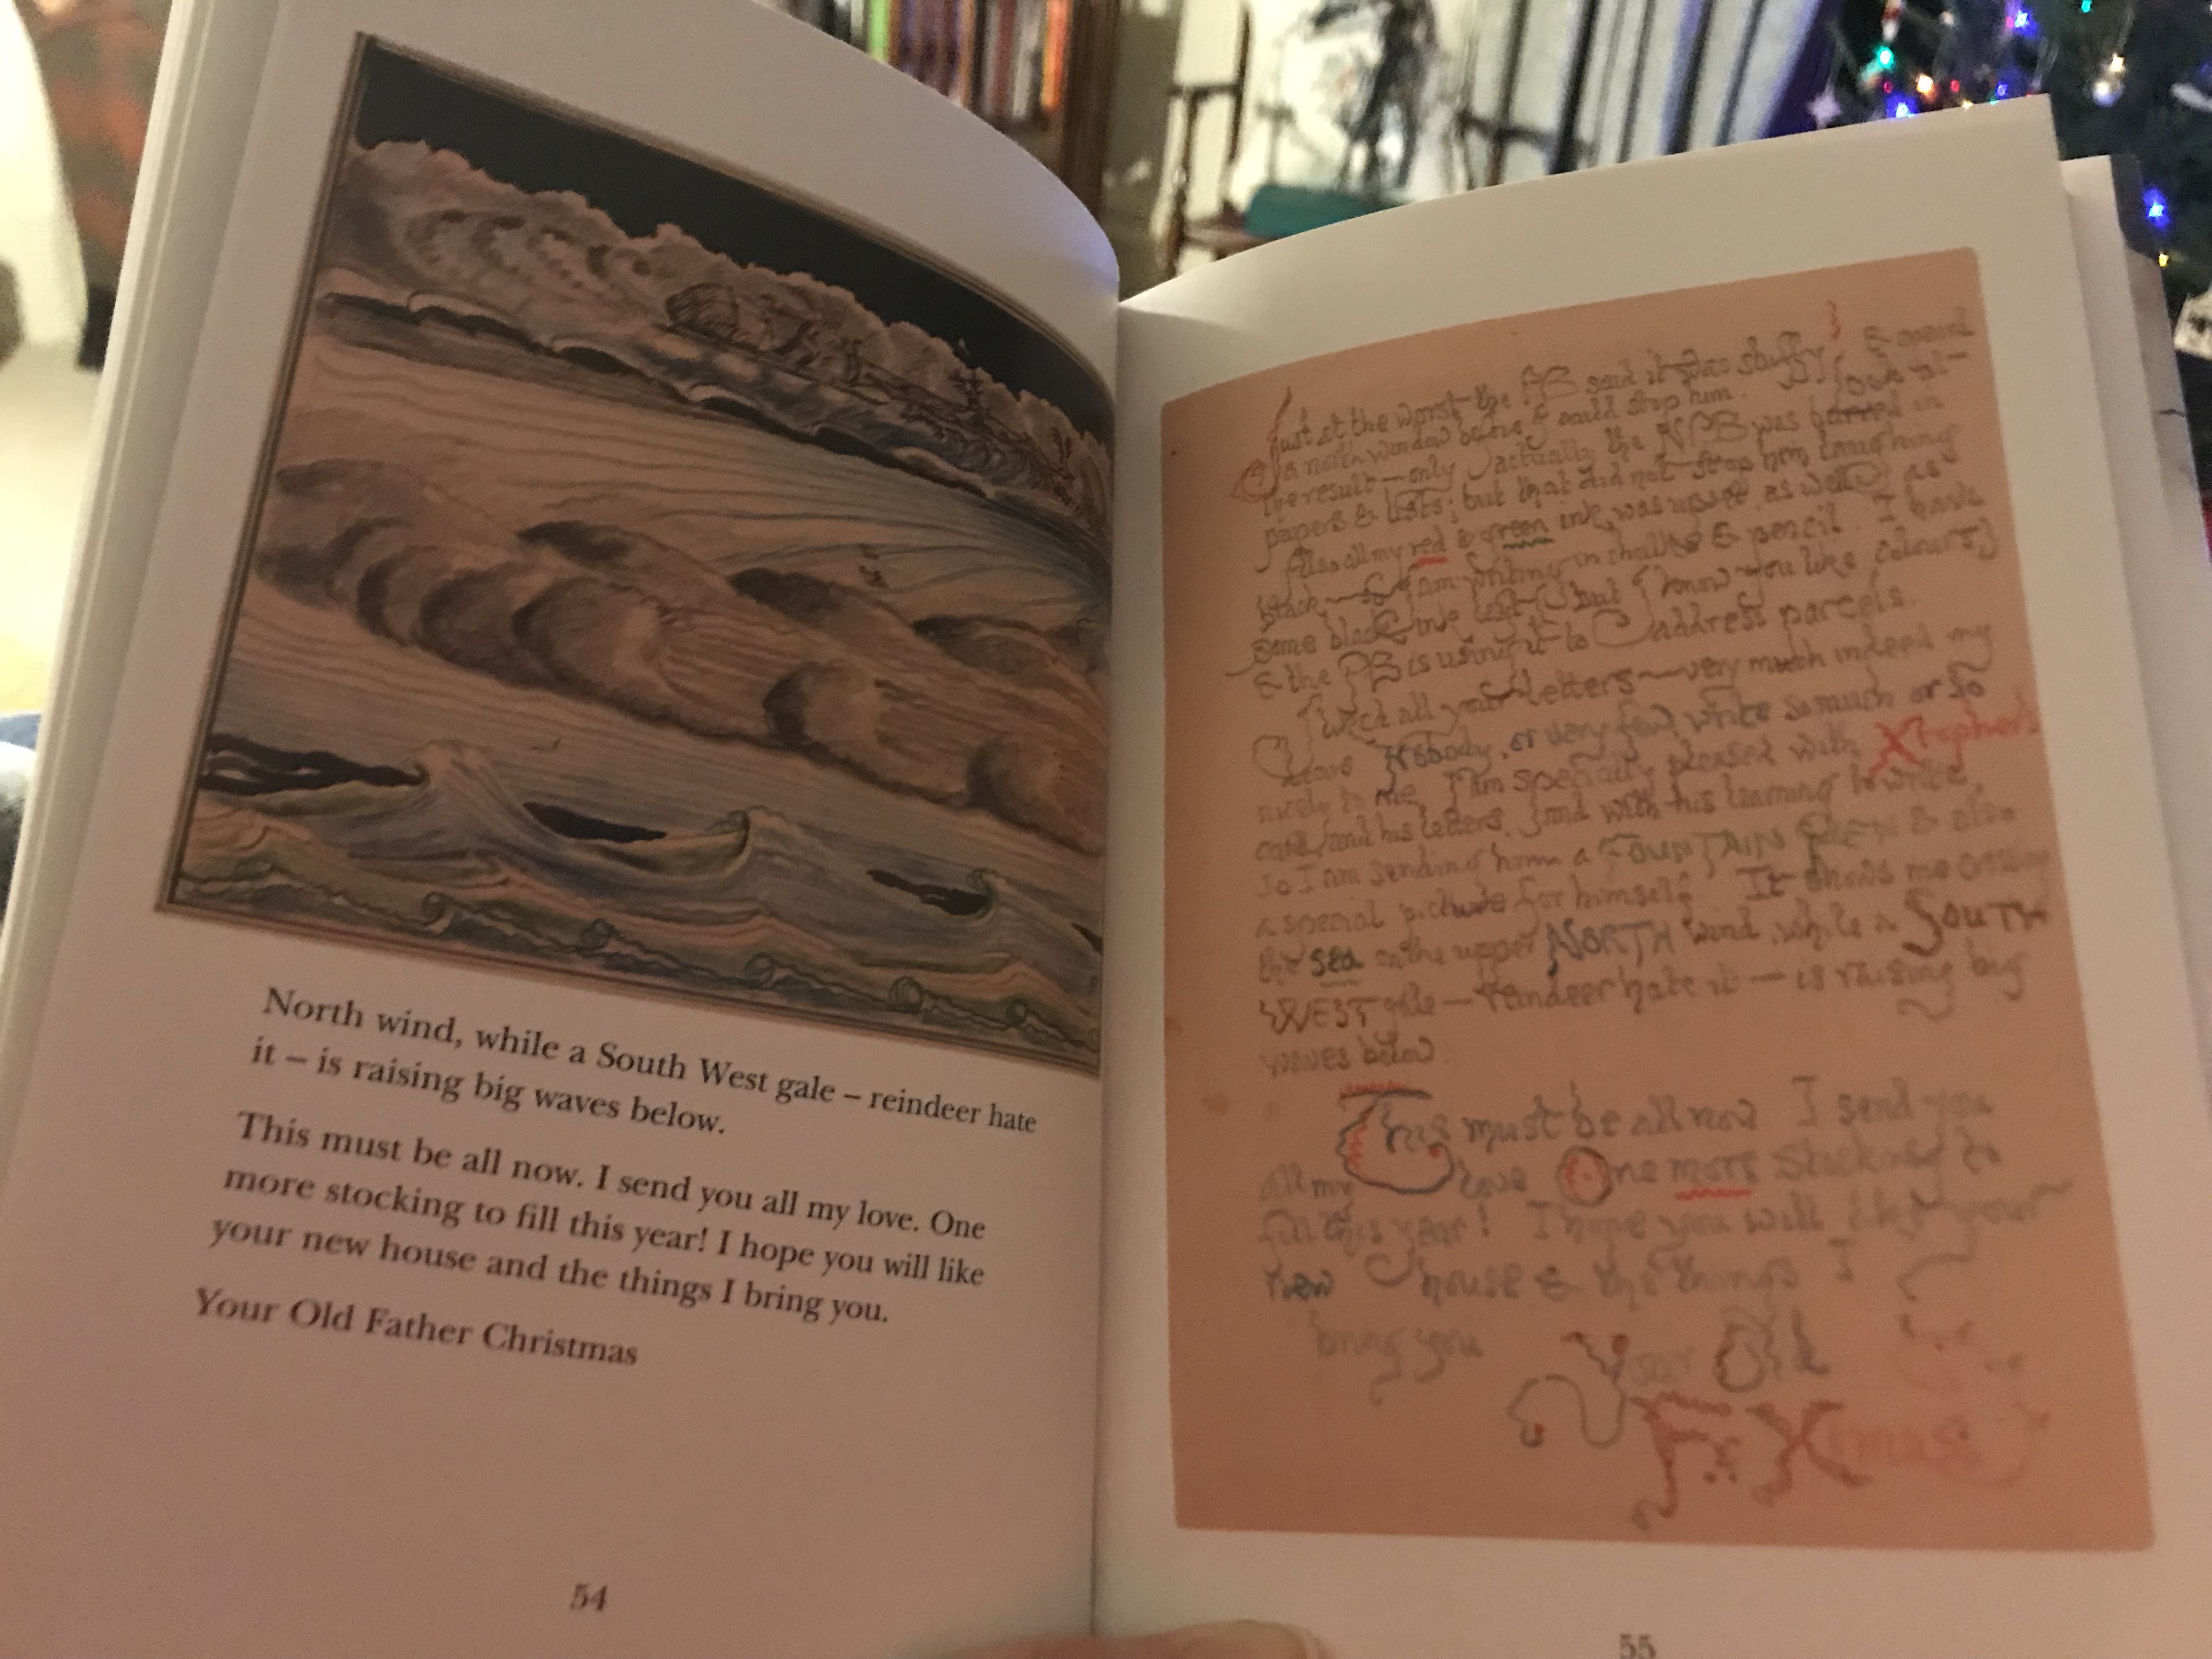 North wind, while a South West gale – reindeer hate
it – is raising big waves below.
This must be all now. I send you all my love. One
more stocking to fill this year! I hope you will like
your new house and the things I bring you.
Your Old Father Christmas
54
Just at the worst the PB said it was stuffy & opened
a north window before I could stop him. Look at
the result — only actually the NPB was buried in
papers & lists; but that did not stop him laughing
Also all my red & green ink was upset, as well as
black — so I am writing in chalk & pencil. I have
some black ink left but I know you like colours,
& the PB is using it to address parcels.
I liked all your letters — very much indeed my
dears Nobody, or very few, write so much or so
nicely to me. I am specially pleased with Xtopher's
card, and his letters, and with his learning to write,
so I am sending him a FOUNTAIN PEN & also
a special picture for himself. It shows me crossing
the sea on the upper NORTH wind, while a SOUTH
WEST gale — reindeer hate it — is raising big
waves below.
This must be all now I send you
all my love One more stocking to
fill this year! I hope you will like your
new house & the things I
bring you
Your Old
Fr Xmas
55